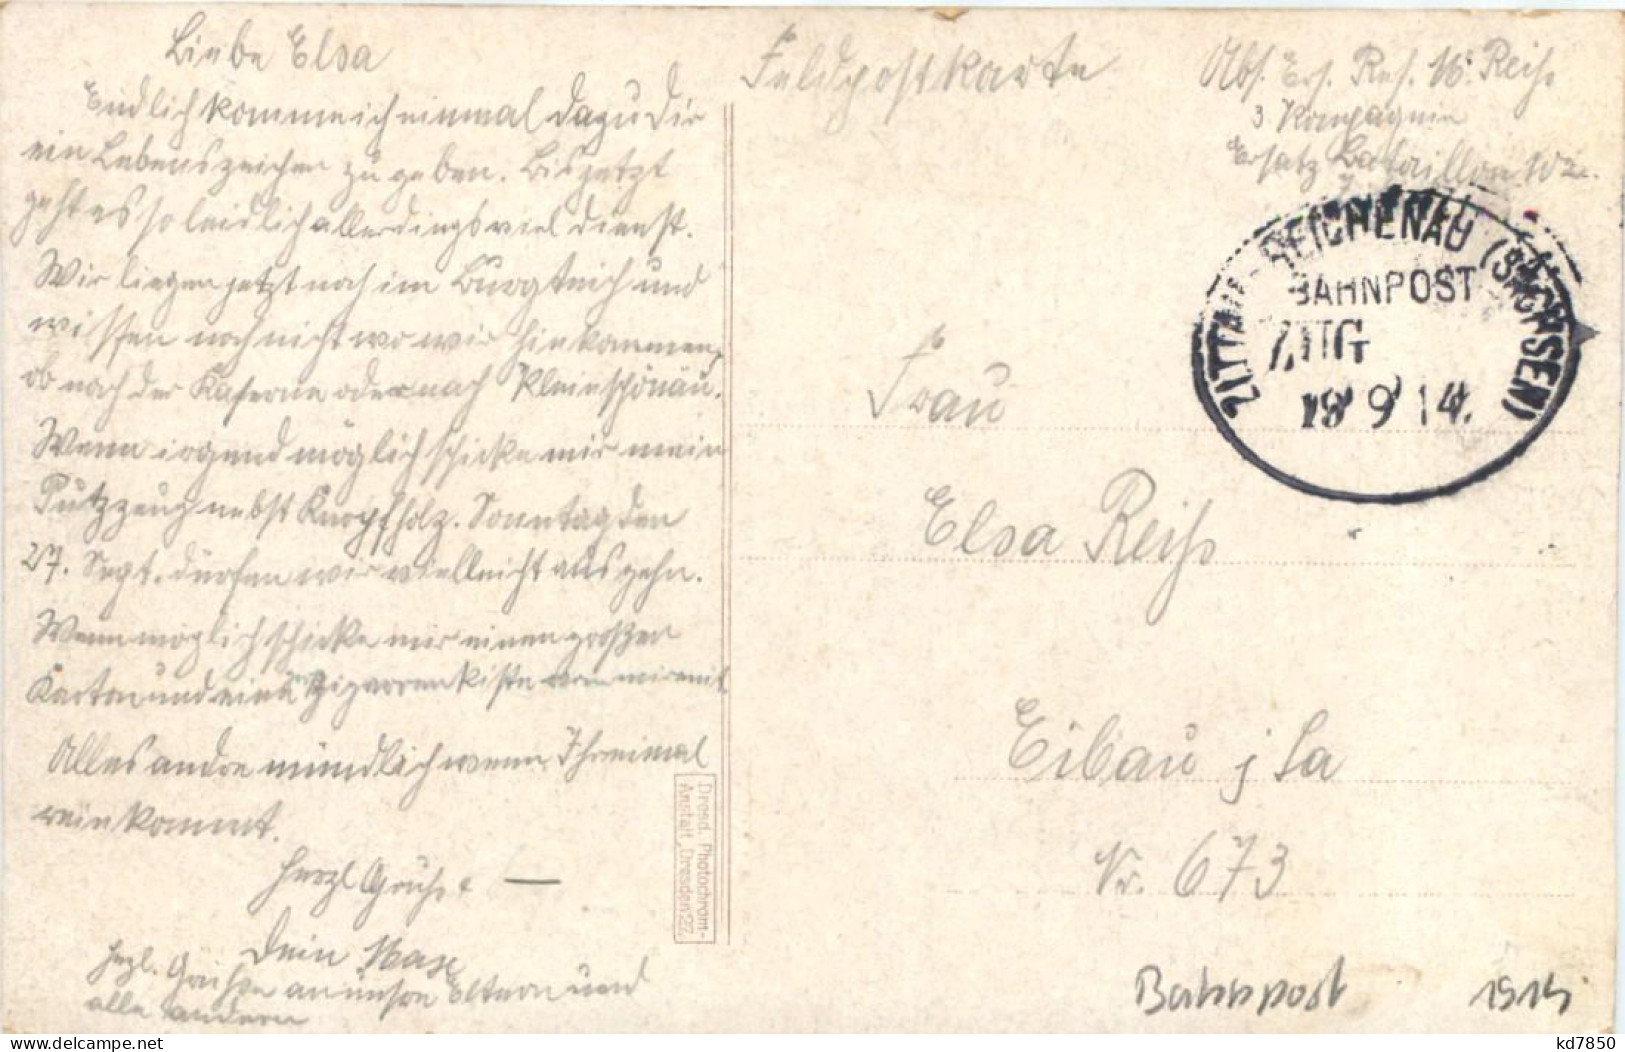 Liebe Elsa
Endlich komme ich einmal dazu Dir
ein Lebenszeichen zu geben. Bis jetzt
geht es so leidlich allerdings viel Dienst.
Wir liegen jetzt noch im Burgteich und
wissen noch nicht wo wir hinkommen,
ob nach der Kaserne oder nach Kleinschönau.
Wenn irgend möglich schicke mir mein
Putzzeug nebst Knopfholz. Sonntag den
27. Sept. dürfen wir vielleicht ausgehn.
Wenn möglich schicke mir einen großen
Karton und eine Zigarrenkiste
Alles andre mündlich wenn Ihr einmal
rein kommt.
Herzl Grüße
Dein Max
Hezl. Grüße an unsre Eltern und
alle andern
Feldpostkarte
Abs. Ers. Res. M. Reiß
3 Kompagnie
Ersatz Bataillon 102.
ZITTAU-REICHENAU (SACHSEN)
BAHNPOST
ZUG
19 9 14.
Frau
Elsa Reiß
Eibau i Sa
Nr. 673
Dresd. Photochrom-
Anstalt, Dresden 27.
Bahnpost 1914
kd7850